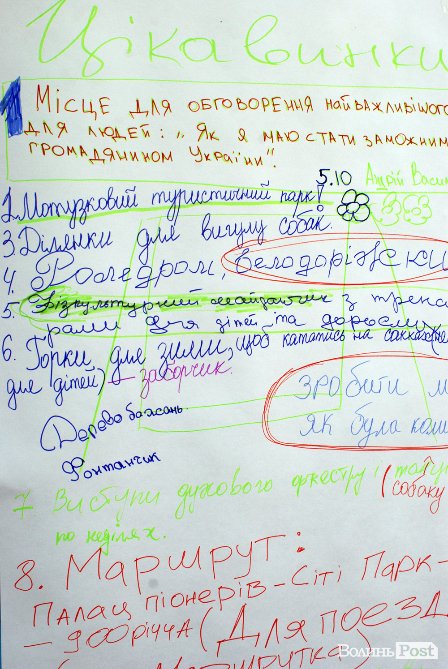 Цікавинки
1 Місце для обговорення найважливішого
для людей: „Як я маю стати заможним
громадянином України".
5.10
Андрій Васи
2. Мотузковий туристичний парк!
3. Ділянки для вигулу собак.
4. Роледром, велодоріжки
5. Фізкультурний майданчик з трена
рами для дітей та дорослих
6. Горки для зими, щоб кататись на санках
для дітей) – заборчик.
(Дерево бажань
зробити м
як була кол
Фонтанчик
7 Виступи духового оркестру,
(собаку
по неділях.
8. Маршрут:
Палац піонерів – Сіті Парк –
– 900річчя (Для поезд
Маршрутка)
Волинь Post